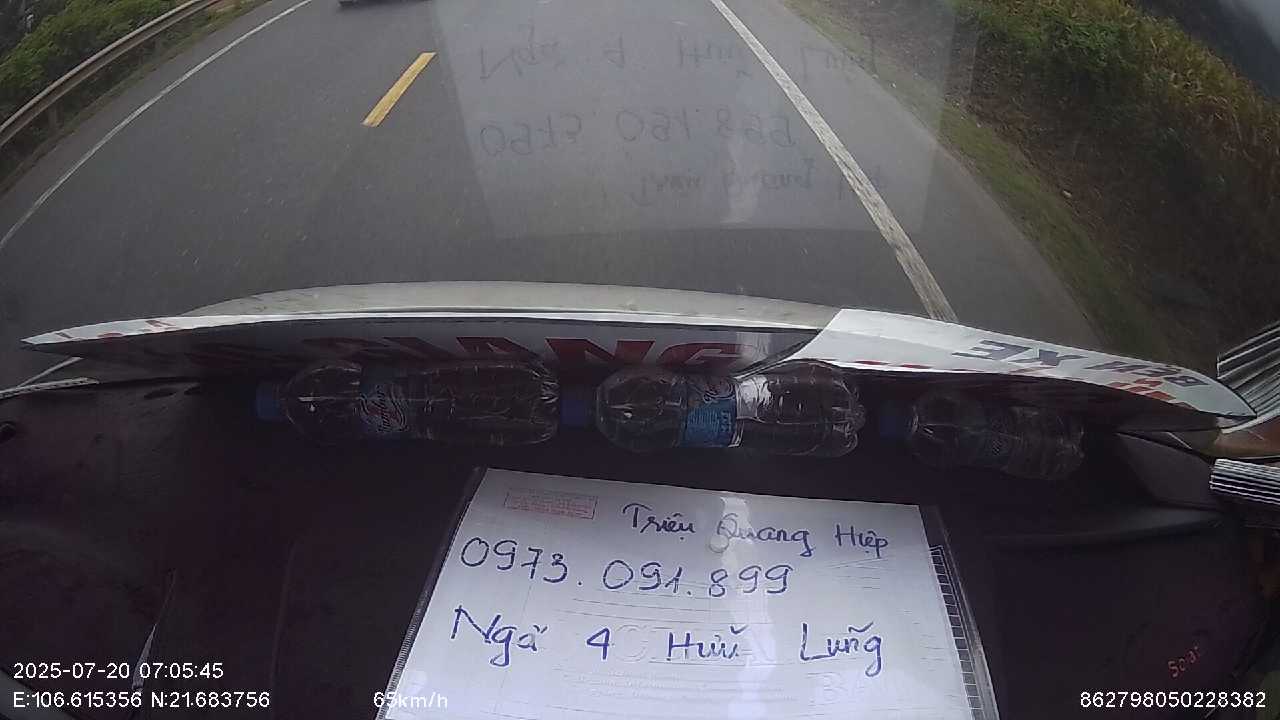 GIANG
BẾN XE
Triệu Quang Hiệp
0973.091.899
Ngã 4 Hữu Lũng
2025-07-20 07:05:45
E:106.615356 N:21.683756
65km/h
862798050228382